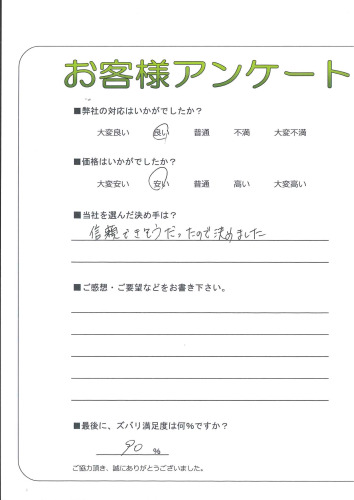 お客様アンケート
■弊社の対応はいかがでしたか？
大変良い 良い 普通 不満 大変不満
■価格はいかがでしたか？
大変安い 安い 普通 高い 大変高い
■当社を選んだ決め手は？
信頼できそうだったので決めました
■ご感想・ご要望などをお書き下さい。
■最後に、ズバリ満足度は何％ですか？
90 ％
ご協力頂き、誠にありがとうございました。